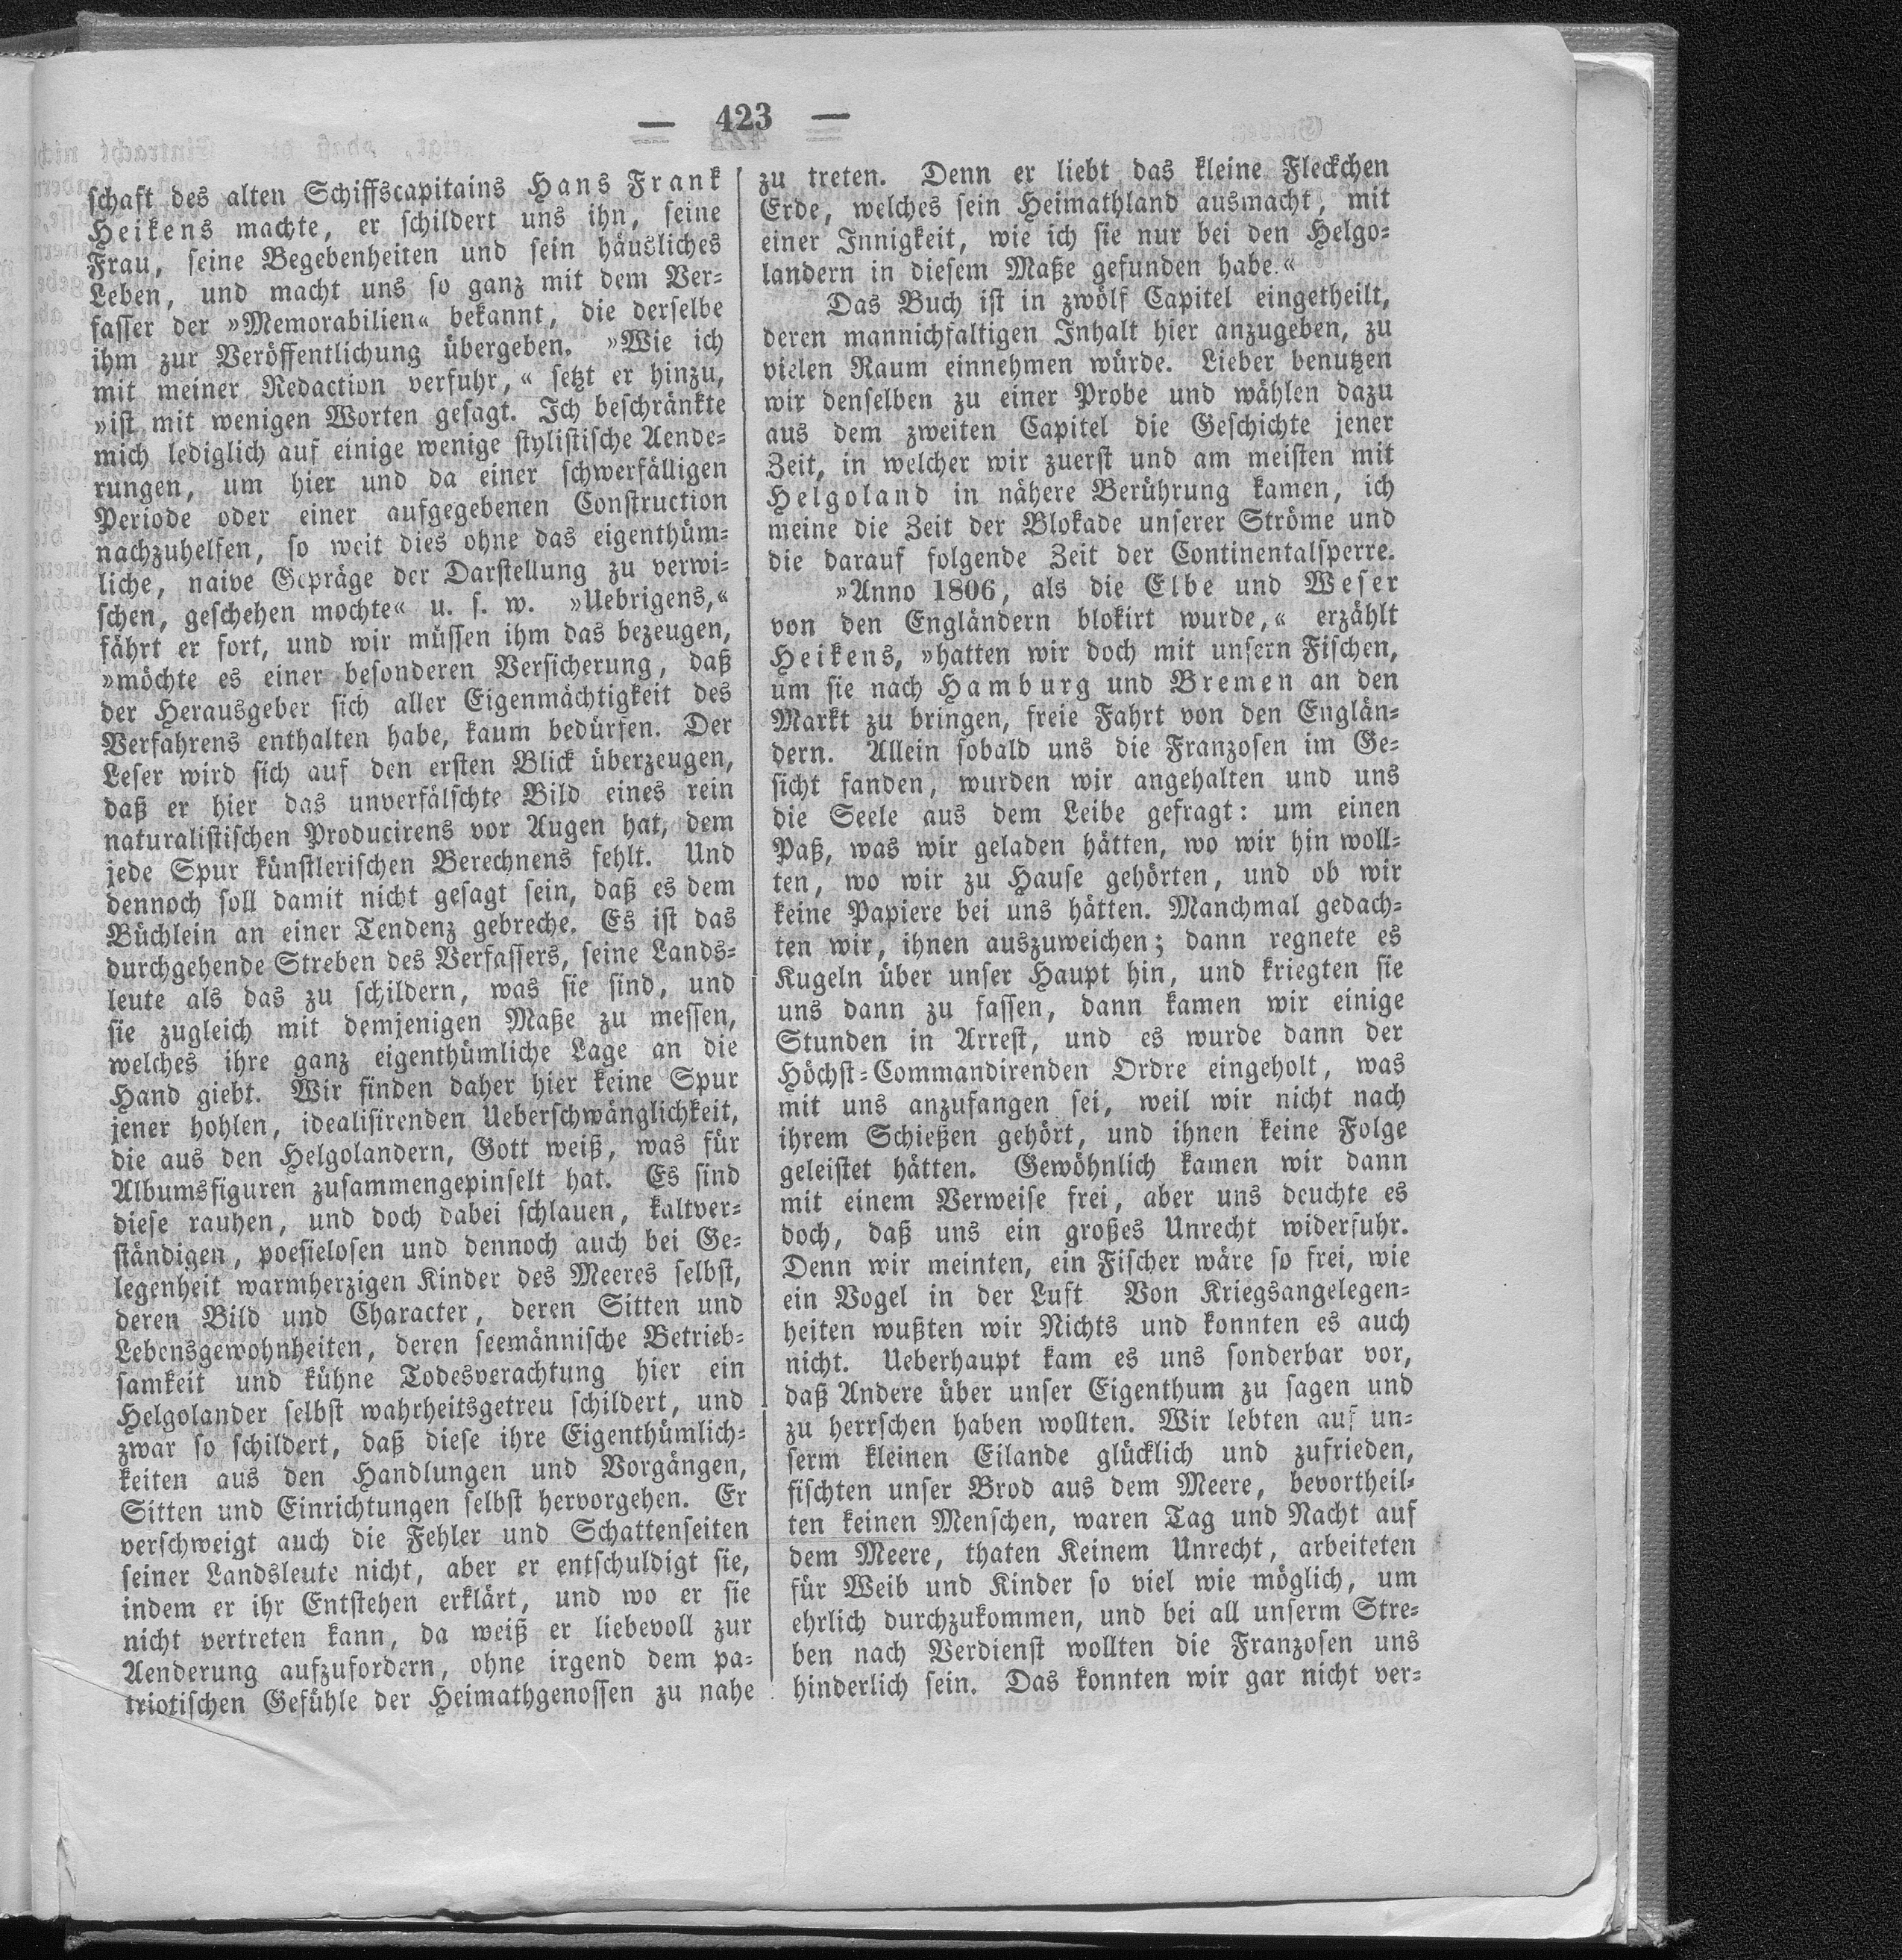 — 423 —
schaft des alten Schiffscapitains Hans Frank
Heikens machte, er schildert uns ihn, seine
Frau, seine Begebenheiten und sein häusliches
Leben, und macht uns so ganz mit dem Ver-
fasser der »Memorabilien« bekannt, die derselbe
ihm zur Veröffentlichung übergeben. »Wie ich
mit meiner Redaction verfuhr,« setzt er hinzu,
»ist mit wenigen Worten gesagt. Ich beschränkte
mich lediglich auf einige wenige stylistische Aende-
rungen, um hier und da einer schwerfälligen
Periode oder einer aufgegebenen Construction
nachzuhelfen, so weit dies ohne das eigenthüm-
liche, naive Gepräge der Darstellung zu verwi-
schen, geschehen mochte« u. s. w. »Uebrigens,«
fährt er fort, und wir müssen ihm das bezeugen,
»möchte es einer besonderen Versicherung, daß
der Herausgeber sich aller Eigenmächtigkeit des
Verfahrens enthalten habe, kaum bedürfen. Der
Leser wird sich auf den ersten Blick überzeugen,
daß er hier das unverfälschte Bild eines rein
naturalistischen Producirens vor Augen hat, dem
jede Spur künstlerischen Berechnens fehlt. Und
dennoch soll damit nicht gesagt sein, daß es dem
Büchlein an einer Tendenz gebreche. Es ist das
durchgehende Streben des Verfassers, seine Lands-
leute als das zu schildern, was sie sind, und
sie zugleich mit demjenigen Maße zu messen,
welches ihre ganz eigenthümliche Lage an die
Hand giebt. Wir finden daher hier keine Spur
jener hohlen, idealisirenden Ueberschwänglichkeit,
die aus den Helgolandern, Gott weiß, was für
Albumsfiguren zusammengepinselt hat. Es sind
diese rauhen, und doch dabei schlauen, kaltver-
ständigen, poesielosen und dennoch auch bei Ge-
legenheit warmherzigen Kinder des Meeres selbst,
deren Bild und Character, deren Sitten und
Lebensgewohnheiten, deren seemännische Betrieb-
samkeit und kühne Todesverachtung hier ein
Helgolander selbst wahrheitsgetreu schildert, und
zwar so schildert, daß diese ihre Eigenthümlich-
keiten aus den Handlungen und Vorgängen,
Sitten und Einrichtungen selbst hervorgehen. Er
verschweigt auch die Fehler und Schattenseiten
seiner Landsleute nicht, aber er entschuldigt sie,
indem er ihr Entstehen erklärt, und wo er sie
nicht vertreten kann, da weiß er liebevoll zur
Aenderung aufzufordern, ohne irgend dem pa-
triotischen Gefühle der Heimathgenossen zu nahe
zu treten. Denn er liebt das kleine Fleckchen
Erde, welches sein Heimathland ausmacht, mit
einer Innigkeit, wie ich sie nur bei den Helgo-
landern in diesem Maße gefunden habe.«
Das Buch ist in zwölf Capitel eingetheilt,
deren mannichfaltigen Inhalt hier anzugeben, zu
vielen Raum einnehmen würde. Lieber benutzen
wir denselben zu einer Probe und wählen dazu
aus dem zweiten Capitel die Geschichte jener
Zeit, in welcher wir zuerst und am meisten mit
Helgoland in nähere Berührung kamen, ich
meine die Zeit der Blokade unserer Ströme und
die darauf folgende Zeit der Continentalsperre.
»Anno 1806, als die Elbe und Weser
von den Engländern blokirt wurde,« erzählt
Heikens, »hatten wir doch mit unsern Fischen,
um sie nach Hamburg und Bremen an den
Markt zu bringen, freie Fahrt von den Englän-
dern. Allein sobald uns die Franzosen im Ge-
sicht fanden, wurden wir angehalten und uns
die Seele aus dem Leibe gefragt: um einen
Paß, was wir geladen hätten, wo wir hin woll-
ten, wo wir zu Hause gehörten, und ob wir
keine Papiere bei uns hätten. Manchmal gedach-
ten wir, ihnen auszuweichen; dann regnete es
Kugeln über unser Haupt hin, und kriegten sie
uns dann zu fassen, dann kamen wir einige
Stunden in Arrest, und es wurde dann der
Höchst-Commandirenden Ordre eingeholt, was
mit uns anzufangen sei, weil wir nicht nach
ihrem Schießen gehört, und ihnen keine Folge
geleistet hätten. Gewöhnlich kamen wir dann
mit einem Verweise frei, aber uns deuchte es
doch, daß uns ein großes Unrecht widerfuhr.
Denn wir meinten, ein Fischer wäre so frei, wie
ein Vogel in der Luft Von Kriegsangelegen-
heiten wußten wir Nichts und konnten es auch
nicht. Ueberhaupt kam es uns sonderbar vor,
daß Andere über unser Eigenthum zu sagen und
zu herrschen haben wollten. Wir lebten auf un-
serm kleinen Eilande glücklich und zufrieden,
fischten unser Brod aus dem Meere, bevortheil-
ten keinen Menschen, waren Tag und Nacht auf
dem Meere, thaten Keinem Unrecht, arbeiteten
für Weib und Kinder so viel wie möglich, um
ehrlich durchzukommen, und bei all unserm Stre-
ben nach Verdienst wollten die Franzosen uns
hinderlich sein. Das konnten wir gar nicht ver-